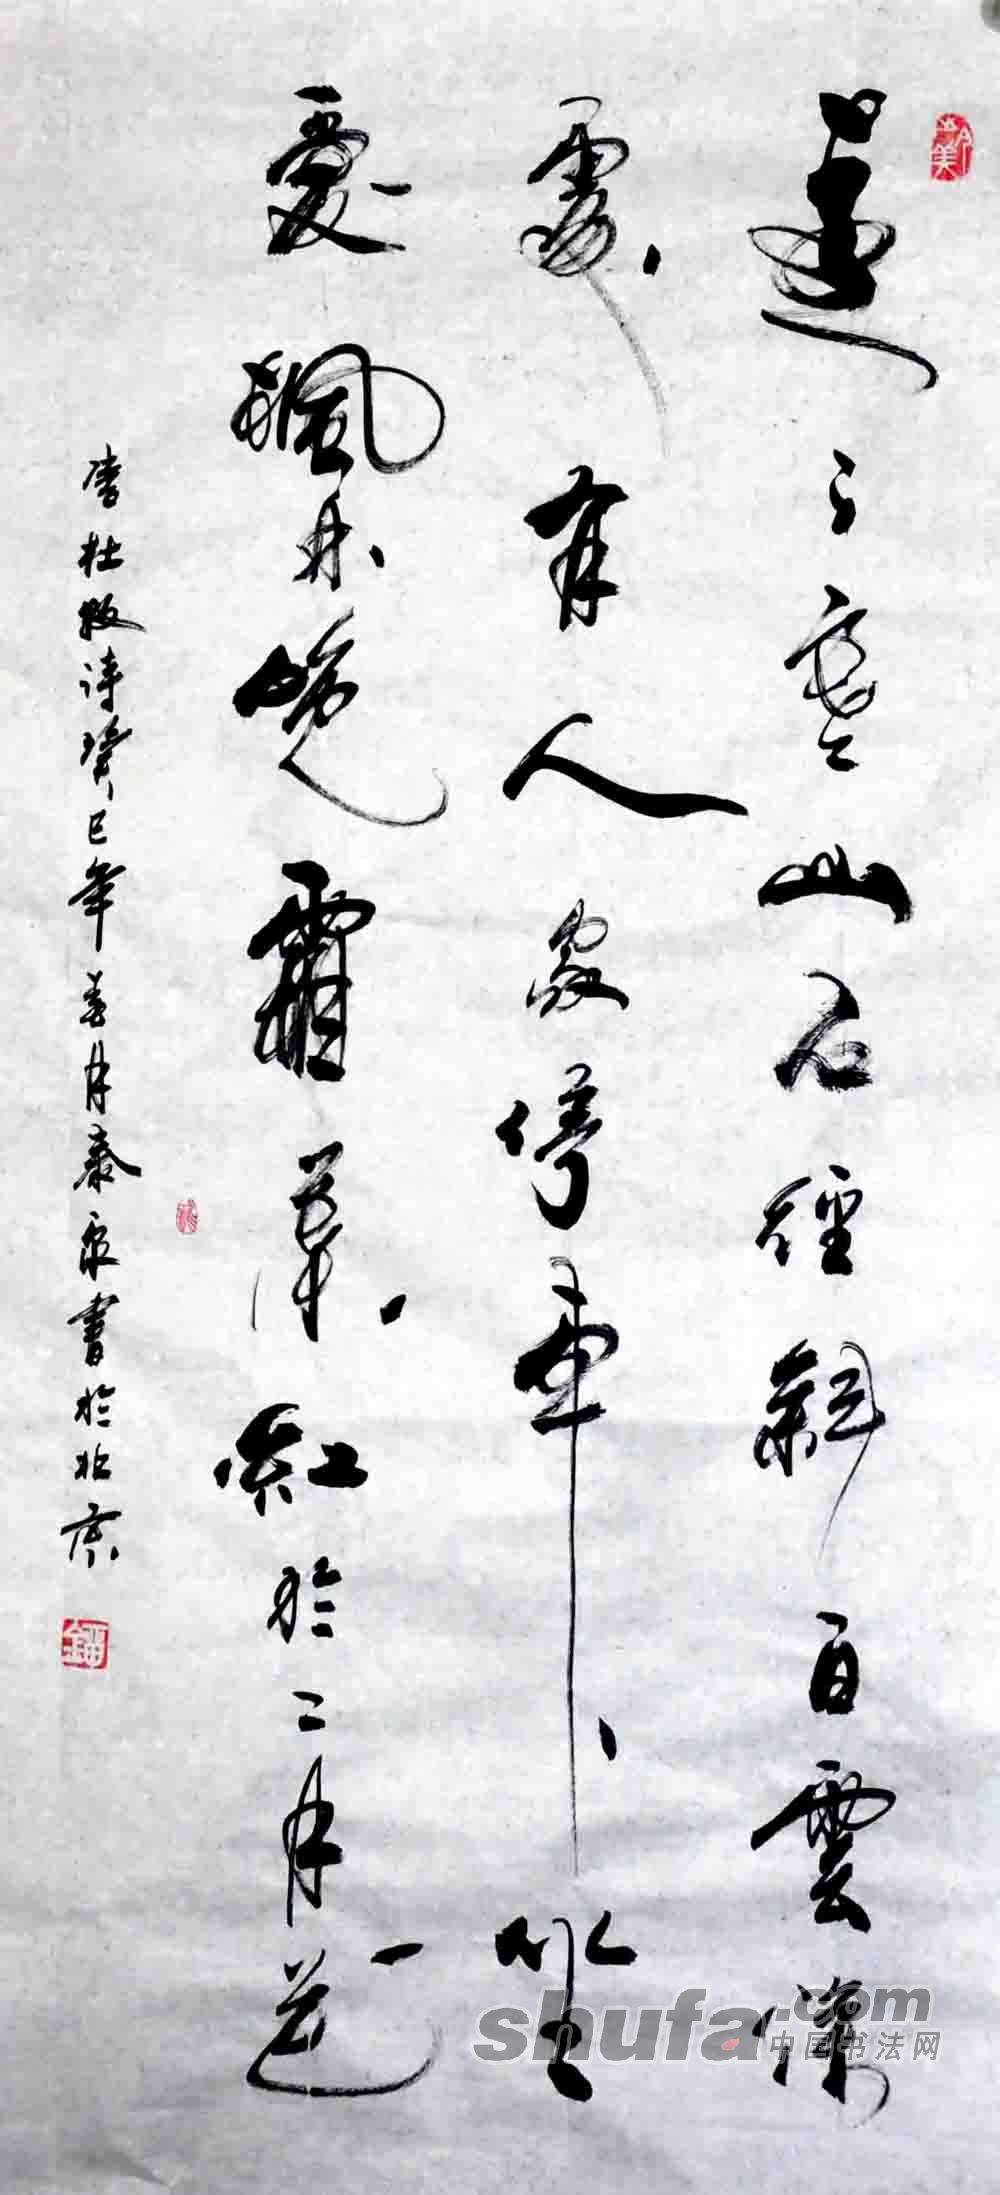 遠上寒山石徑斜白雲深
處有人家停車坐
愛楓林晚霜葉紅於二月花
唐杜牧詩癸巳年春月泰泉書於北京
shufa.com
中国书法网